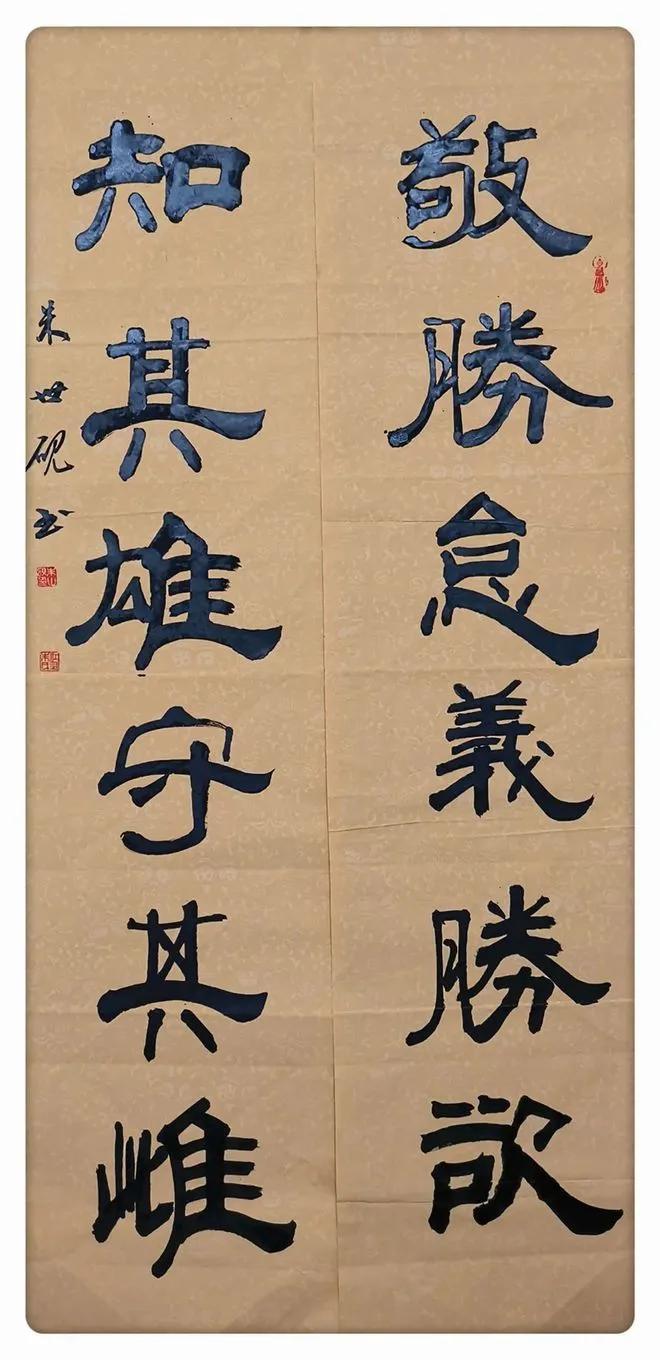 敬勝怠義勝欲
知其雄守其雌
朱世硯书